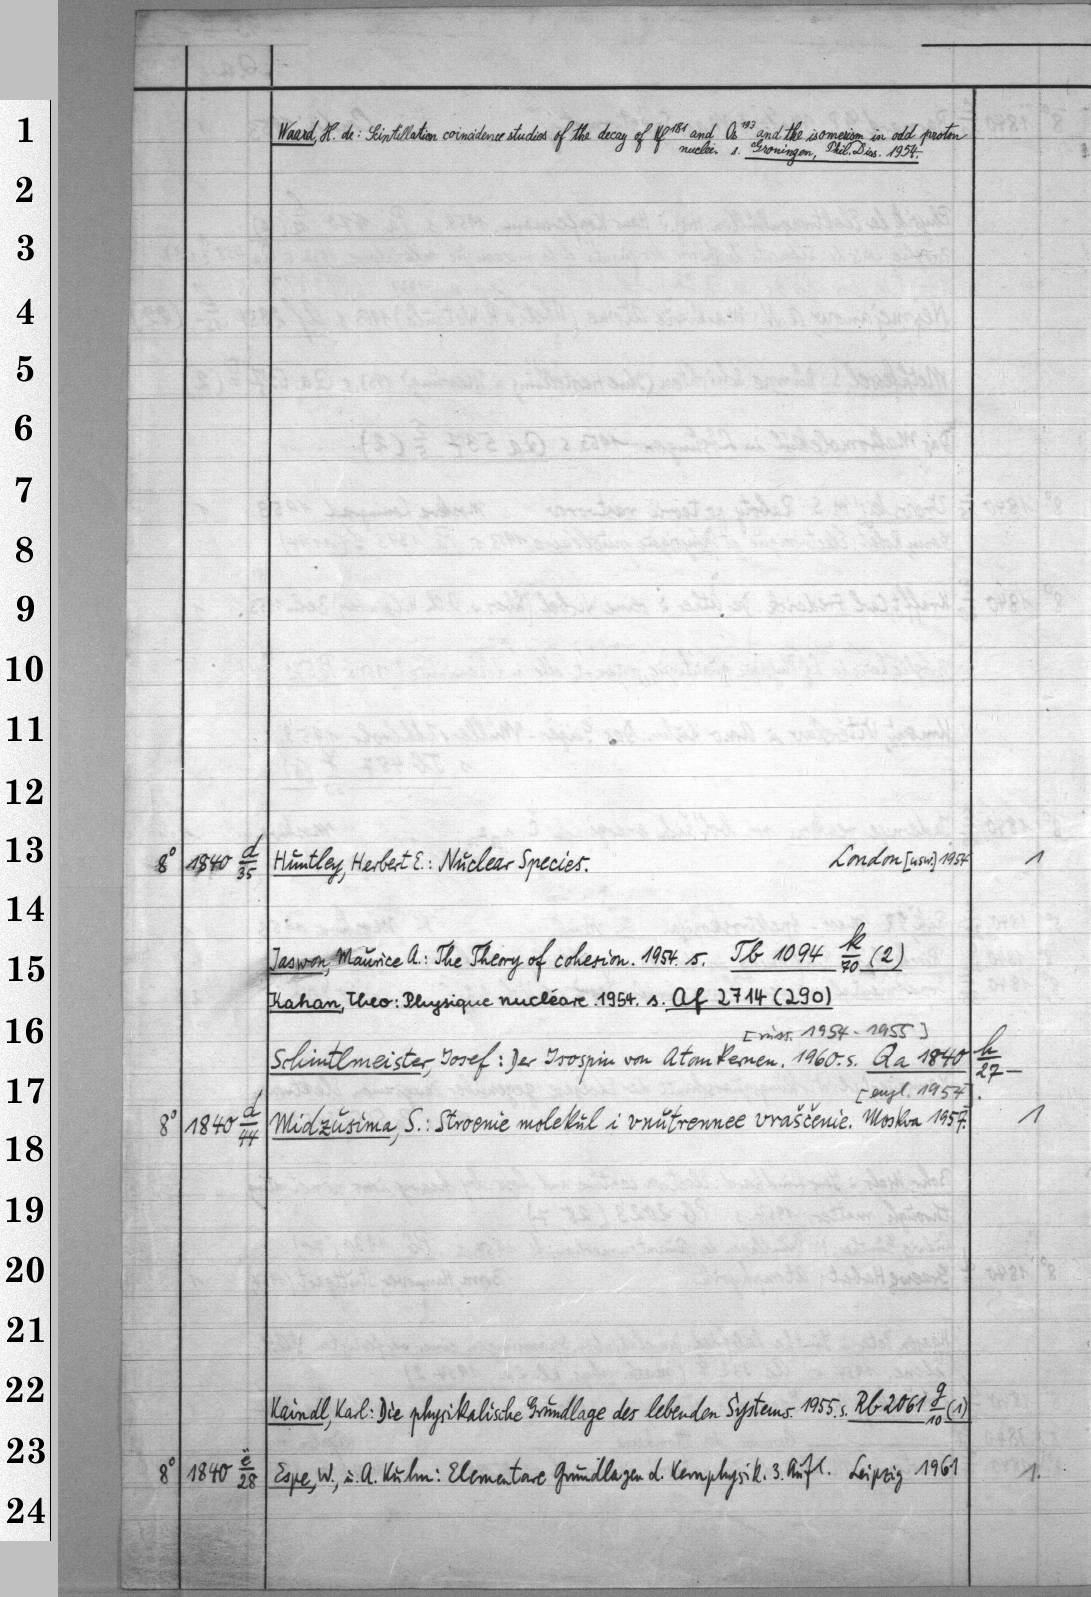 1 Waard, H. de: Scintillation coincidence studies of the decay of Hf¹⁸¹ and Os¹⁹³ and the isomerism in odd proton
nuclei. s. Groningen, Phil. Diss. 1954.
2
3
4
5
6
7
8
9
10
11
12
13 8° 1840 d/35 Huntley, Herbert E.: Nuclear Species. London [usw.] 1954 1
14
15 Jaswon, Maurice A.: The Theory of cohesion. 1954. s. Tb 1094 k/70 (2)
Kahan, Theo: Physique nucléare. 1954. s. Af 2714 (290)
16 [miss. 1954-1955]
Schintlmeister, Josef: Der Isospin von Atomkernen. 1960. s. Qa 1840 h/27
17 [engl. 1954].
8° 1840 d/44 Midzusima, S.: Stroenie molekul i vnutrennee vraščenie. Moskva 1957. 1
18
19
20
21
22 Kaindl, Karl: Die physikalische Grundlage des lebenden Systems. 1955. s. Rb 2061 g/10 (1)
23 8° 1840 e/28 Espe, W., u. A. Kuhn: Elementare Grundlagen d. Kernphysik. 3. Aufl. Leipzig 1961 1.
24